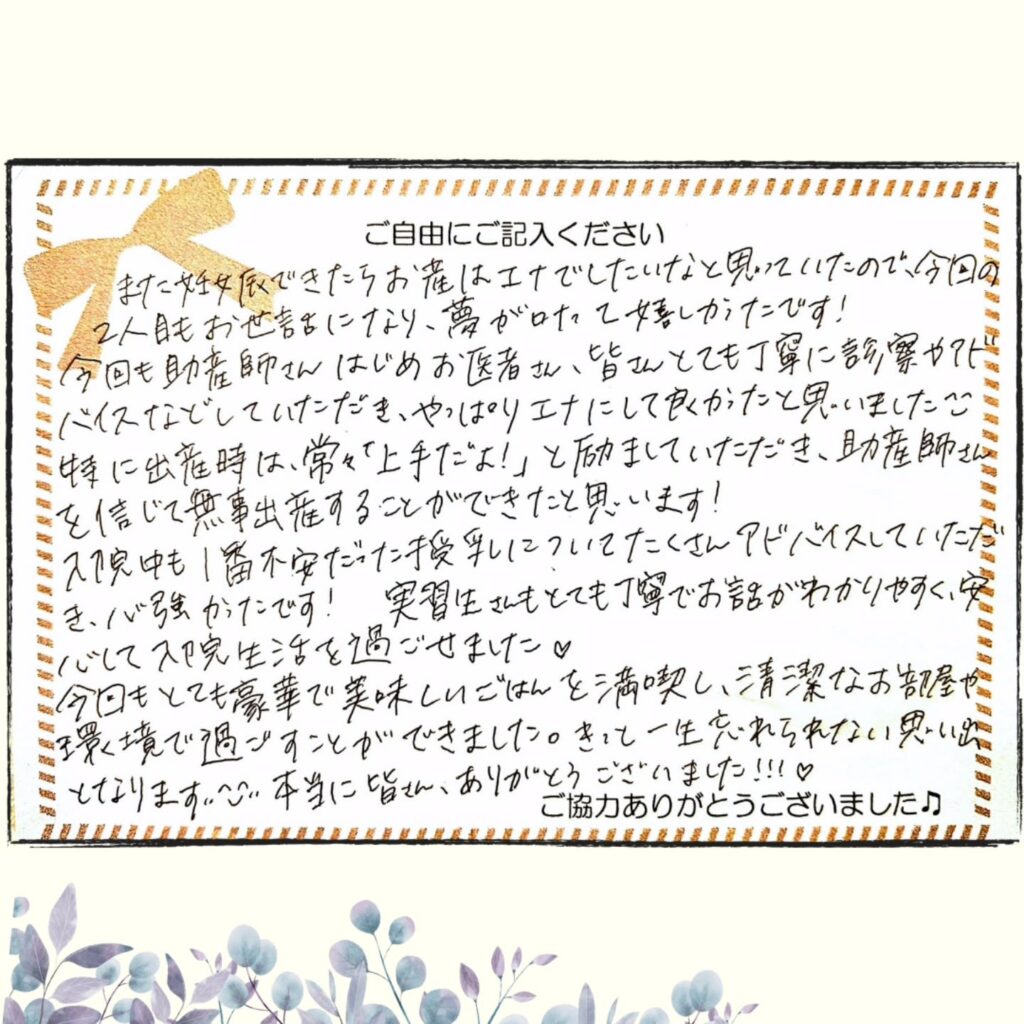 ご自由にご記入ください
また妊娠できたらお産はエナでしたいなと思っていたので、今回の
2人目もお世話になり、夢が叶って嬉しかったです!
今回も助産師さんはじめお医者さん、皆さんとても丁寧に診察やアド
バイスなどしていただき、やっぱりエナにして良かったと思いました
特に出産時は、常々「上手だよ!」と励ましていただき、助産師さん
を信じて無事出産することができたと思います!
入院中も1番不安だった授乳についてたくさんアドバイスしていただ
き、心強かったです! 実習生さんもとても丁寧でお話がわかりやすく、安
心して入院生活を過ごせました♡
今回もとても豪華で美味しいごはんを満喫し、清潔なお部屋や
環境で過ごすことができました。きっと一生忘れられない思い出
となります。本当に皆さん、ありがとうございました!!!♡
ご協力ありがとうございました♫